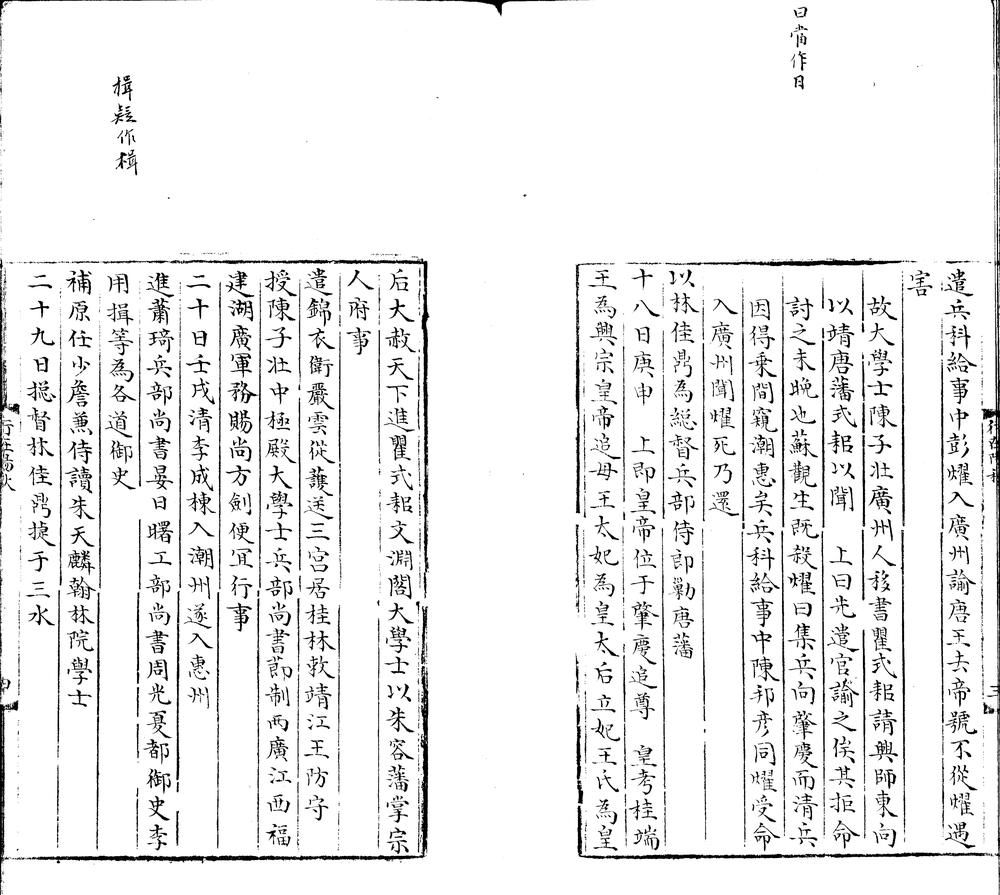 曰當作日
遣兵科給事中彭燿入廣州諭唐王去帝號不從燿遇
害
故大學士陳子壯廣州人移書瞿式耜請興師東向
以靖唐藩式耜以聞　上曰先遣官諭之俟其拒命
討之未晚也蘇觀生既殺燿曰集兵向肇慶而清兵
因得乘間窺潮惠矣兵科給事中陳邦彦同燿受命
入廣州聞燿死乃還
以林佳鼎為総督兵部侍郎勦唐藩
十八日庚申　上即皇帝位于肇慶追尊　皇考桂端
王為興宗皇帝追母王太妃為皇太后立妃王氏為皇
揖疑作楫
后大赦天下進瞿式耜文淵閣大學士以朱容藩掌宗
人府事
遣錦衣衛嚴雲從護送三宮居桂林敕靖江王防守
授陳子壯中極殿大學士兵部尚書節制兩廣江西福
建湖廣軍務賜尚方劍便冝行事
二十日壬戌清李成棟入潮州遂入惠州
進蕭琦兵部尚書晏日曙工部尚書周光夏都御史李
用揖等為各道御史
補原任少詹兼侍讀朱天麟翰林院學士
二十九日捴督林佳鼎捷于三水